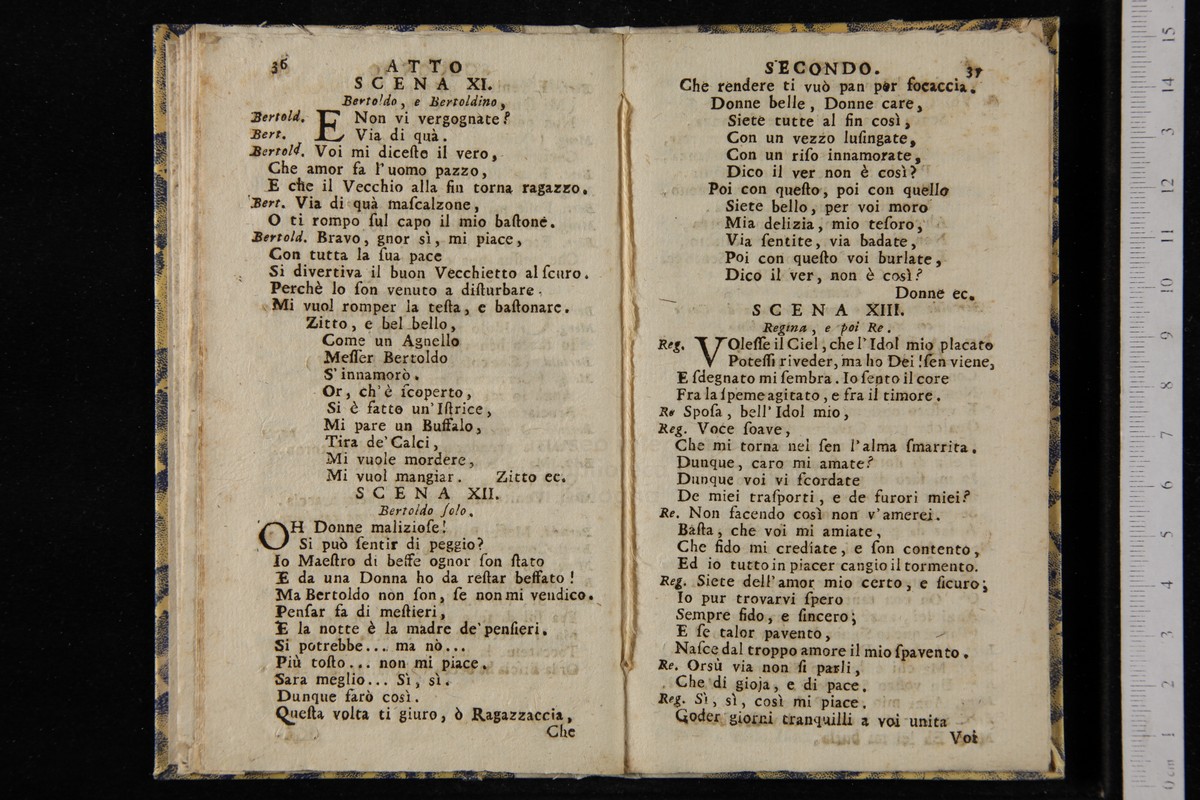 36
ATTO
SCENA XI.
Bertoldo, e Bertoldino,
Bertold. E Non vi vergognate?
Bert. Via di quà.
Bertold. Voi mi diceſte il vero,
Che amor fa l'uomo pazzo,
E che il Vecchio alla fin torna ragazzo.
Bert. Via di quà maſcalzone,
O ti rompo ſul capo il mio baſtone.
Bertold. Bravo, gnor sì, mi piace,
Con tutta la ſua pace
Si divertiva il buon Vecchietto al ſcuro.
Perchè lo ſon venuto a diſturbare.
Mi vuol romper la teſta, e baſtonare.
Zitto, e bel bello,
Come un Agnello
Meſſer Bertoldo
S' innamorò.
Or, ch' è ſcoperto,
Si è fatto un' Iſtrice,
Mi pare un Buffalo,
Tira de' Calci,
Mi vuole mordere,
Mi vuol mangiar. Zitto ec.
SCENA XII.
Bertoldo ſolo.
OH Donne malizioſe!
Si può ſentir di peggio?
Io Maeſtro di beffe ognor ſon ſtato
E da una Donna ho da reſtar beffato!
Ma Bertoldo non ſon, ſe non mi vendico.
Penſar fa di meſtieri,
E la notte è la madre de' penſieri.
Si potrebbe... ma nò...
Più toſto... non mi piace.
Sara meglio... Sì, sì.
Dunque farò così.
Queſta volta ti giuro, ò Ragazzaccia,
Che
SECONDO.
37
Che rendere ti vuò pan per focaccia.
Donne belle, Donne care,
Siete tutte al fin così,
Con un vezzo luſingate,
Con un riſo innamorate,
Dico il ver non è così?
Poi con queſto, poi con quello
Siete bello, per voi moro
Mia delizia, mio teſoro,
Via ſentite, via badate,
Poi con queſto voi burlate,
Dico il ver, non è così?
Donne ec.
SCENA XIII.
Regina, e poi Re.
Reg. VOleſſe il Ciel, che l' Idol mio placato
Poteſſi riveder, ma ho Dei! ſen viene,
E ſdegnato mi ſembra. Io ſento il core
Fra la ſpeme agitato, e fra il timore.
Re Spoſa, bell' Idol mio,
Reg. Voce ſoave,
Che mi torna nel ſen l'alma ſmarrita.
Dunque, caro mi amate?
Dunque voi vi ſcordate
De miei traſporti, e de furori miei?
Re. Non facendo così non v'amerei.
Baſta, che voi mi amiate,
Che fido mi crediate, e ſon contento,
Ed io tutto in piacer cangio il tormento.
Reg. Siete dell'amor mio certo, e ſicuro;
Io pur trovarvi ſpero
Sempre fido, e ſincero;
E ſe talor pavento,
Naſce dal troppo amore il mio ſpavento.
Re. Orsù via non ſi parli,
Che di gioja, e di pace.
Reg. Sì, sì, così mi piace.
Goder giorni tranquilli a voi unita
Voi
0 cm 1 2 3 4 5 6 7 8 9 10 11 12 13 14 15